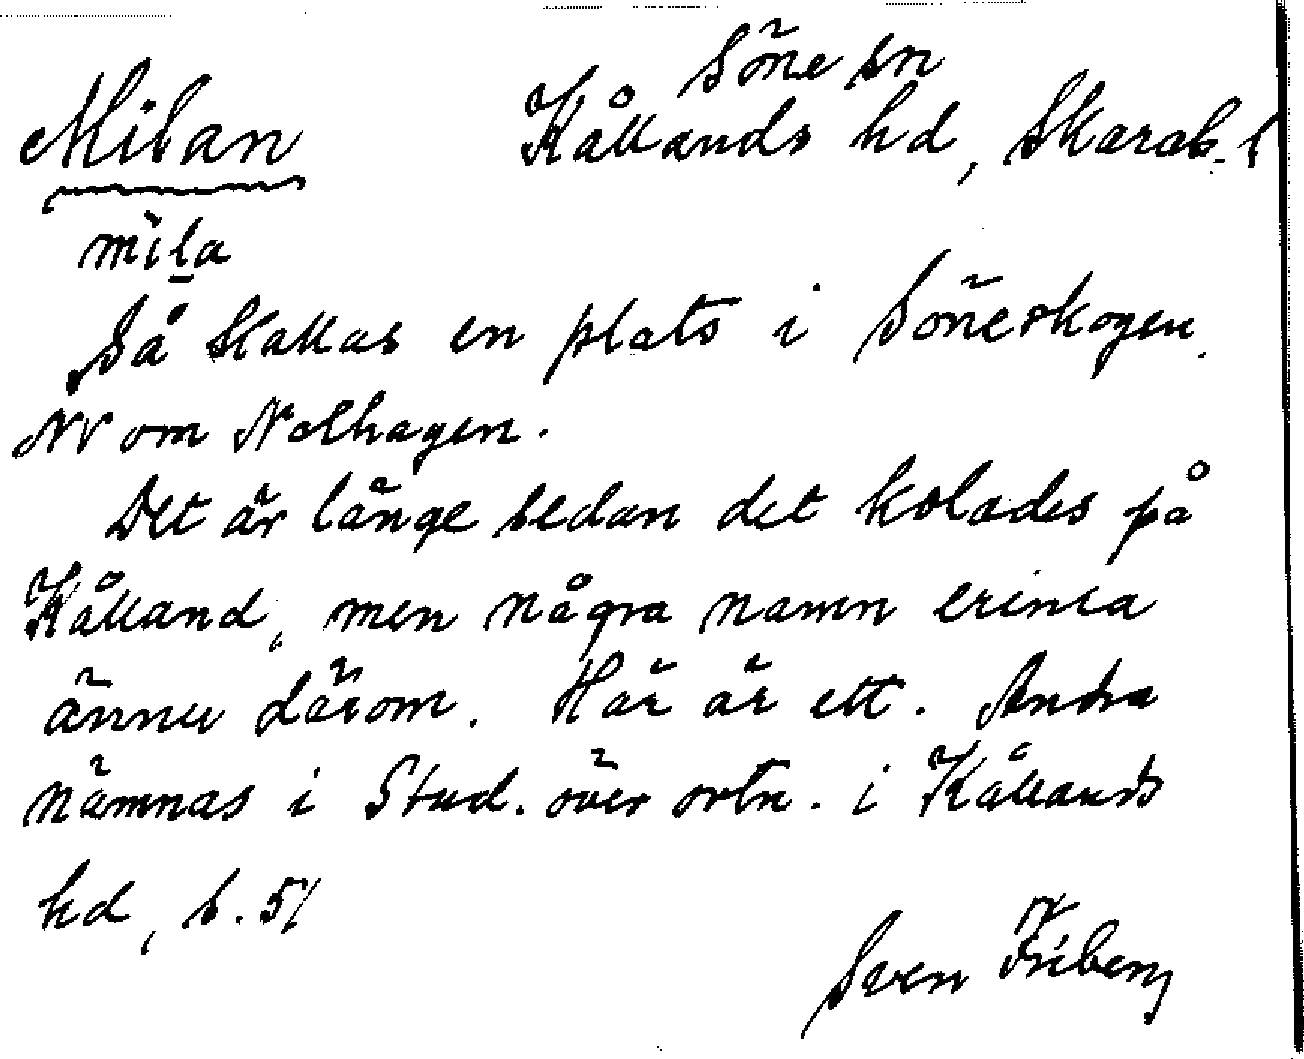 Söne sn
Milan Kållands hd, Skarab. l
mila
Så kallas en plats i Söneskogen
NV om Nolhagen.
Det är länge sedan det kolades på
Kålland, men några namn erinra
ännu därom. Här är ett. Andra
nämnas i Stud. över ortn. i Kållands
hd, s. 51
Sven Friberg